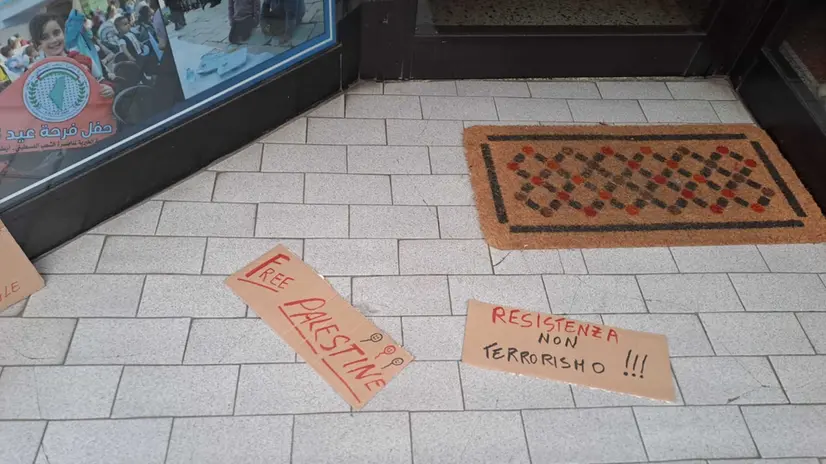 حفل فرحة عيد
LE
FREE
PALESTINE
RESISTENZA
NON
TERRORISMO !!!